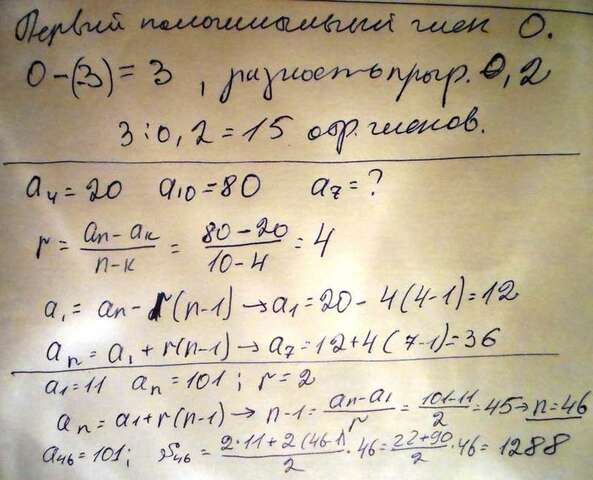 Первый положительный член 0.
0-(-3)=3, разность прогр. 0,2
3:0,2=15 отр. членов.
a4=20 a10=80 a7=?
r = (an-ak)/(n-k) = (80-20)/(10-4) = 4
a1 = an-r(n-1) → a1=20-4(4-1)=12
an = a1+r(n-1) → a7=12+4(7-1)=36
a1=11 an=101; r=2
an=a1+r(n-1) → n-1=(an-a1)/r=(101-11)/2=45→n=46
a46=101; S46=(2·11+2(46-1))/2·46=(22+90)/2·46=1288